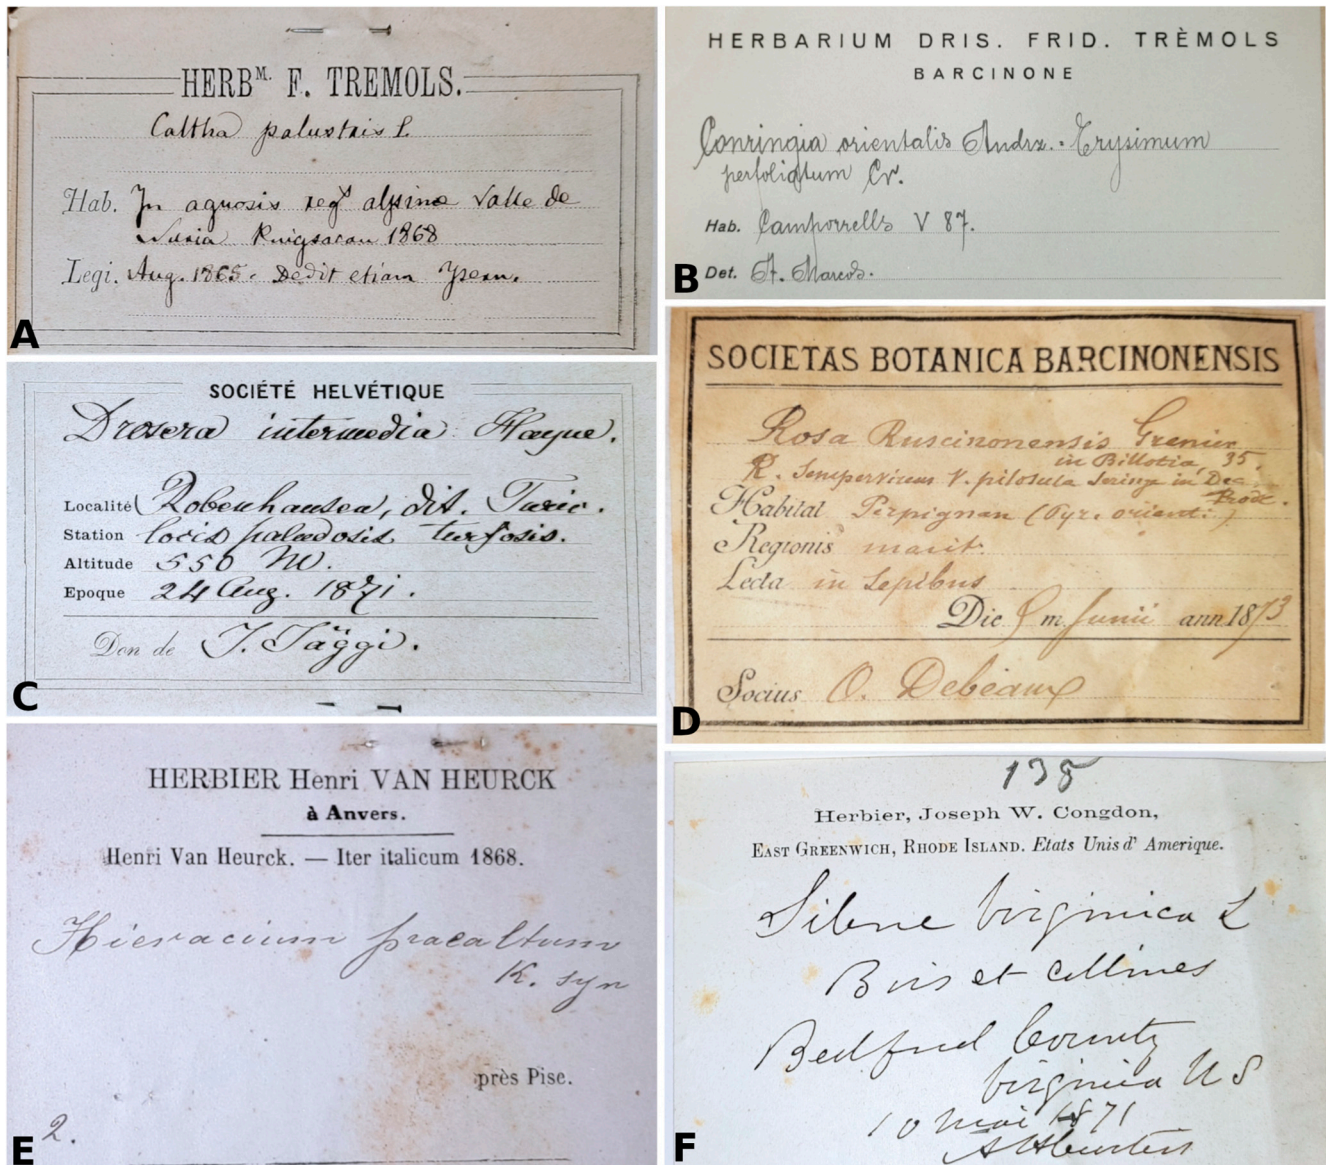 HERBM. F. TREMOLS.
Caltha palustris L.
Hab. In aquosis regs alpinæ Valle de
Nuria Puigsacau 1868
Legi. Aug. 1865. Dedit etiam Ysern.
A
HERBARIUM DRIS. FRID. TRÈMOLS
BARCINONE
Conringia orientalis Andrz. - Erysimum
perfoliatum Cr.
Hab. Camporrells V 87.
Det. A. Marcos.
B
SOCIÉTÉ HELVÉTIQUE
Drosera intermedia Hayne.
Localité Robenhausen, dit. Turic.
Station locis paludosis turfosis.
Altitude 550 M.
Epoque 24 Aug. 1871.
Don de J. Jäggi.
C
SOCIETAS BOTANICA BARCINONENSIS
Rosa Ruscinonensis Grenier
in Billotia, 35.
R. Sempervirens V. pilosula Seringe in Dec.
Prodr.
Habitat Perpignan (Pyr. orient.)
Regionis marit.
Lecta in Sepibus
Die m. Junii ann. 1873
Socius O. Debeaux
D
HERBIER Henri VAN HEURCK
à Anvers.
Henri Van Heurck. — Iter italicum 1868.
Hieracium praealtum
K. syn
près Pise.
2.
E
138
Herbier, Joseph W. Congdon,
EAST GREENWICH, RHODE ISLAND. Etats Unis d' Amerique.
Silene virginica L
Bois et collines
Bedford County
Virginia U S
10 mai 1871
F